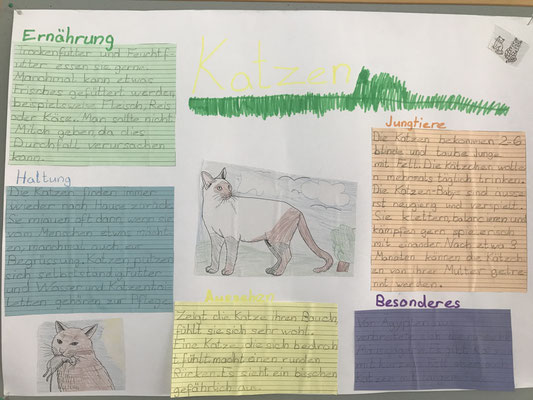 Ernährung
Trockenfutter und Feuchtf
utter essen sie gerne.
Manchmal kann etwas
Frisches gefüttert werden,
beispielsweise Fleisch, Reis
oder Käse. Man sollte nicht
Milch geben, da dies
Durchfall verursachen
kann.
Katzen
Jungtiere
Die Katzen bekommen 2-6
blinde und taube Junge
mit Fell. Die Kätzchen wolle
n mehrmals täglich trinken.
Die Katzen-Baby sind
neugierig und verspielt.
Sie klettern, balancieren und
kämpfen gern spielerisch
miteinander. Nach etwa 3
Monaten können die Kätzch
en von ihrer Mutter getre
nnt werden.
Haltung
Die Katzen finden immer
wieder nach Hause zurück.
Sie miauen oft dann, wenn sie
von Menschen etwas möcht
en, manchmal auch zur
Begrüssung. Katzen putzen
sich selbstständig. Futter
und Wasser und Katzentoi
letten gehören zur Pflege.
Aussehen
Zeigt die Katze ihren Bauch,
fühlt sie sich sehr wohl.
Eine Katze, die sich bedroh
t fühlt, macht einen runden
Rücken. Es sieht ein bisschen
gefährlich aus.
Besonderes
Von Ägypten aus